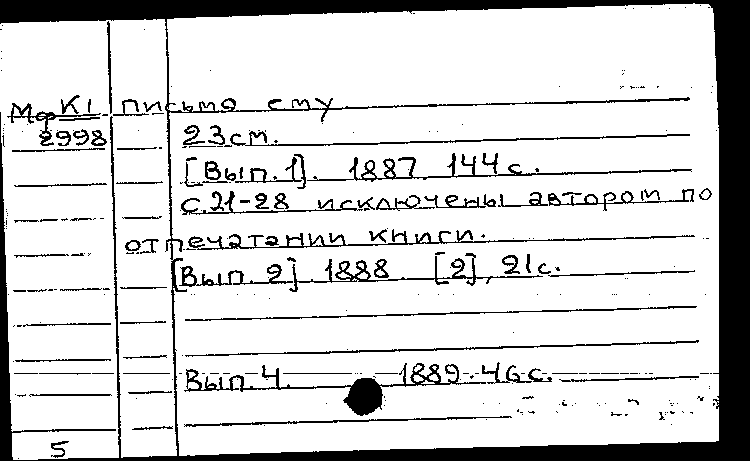 Мф К1 письмо ему
2998 23см.
[Вып.1]. 1887. 144с.
с.21-28 исключены автором по
отпечатании книги.
[Вып. 2] 1888. [2], 21с.
Вып.4. 1889. 46с.
5